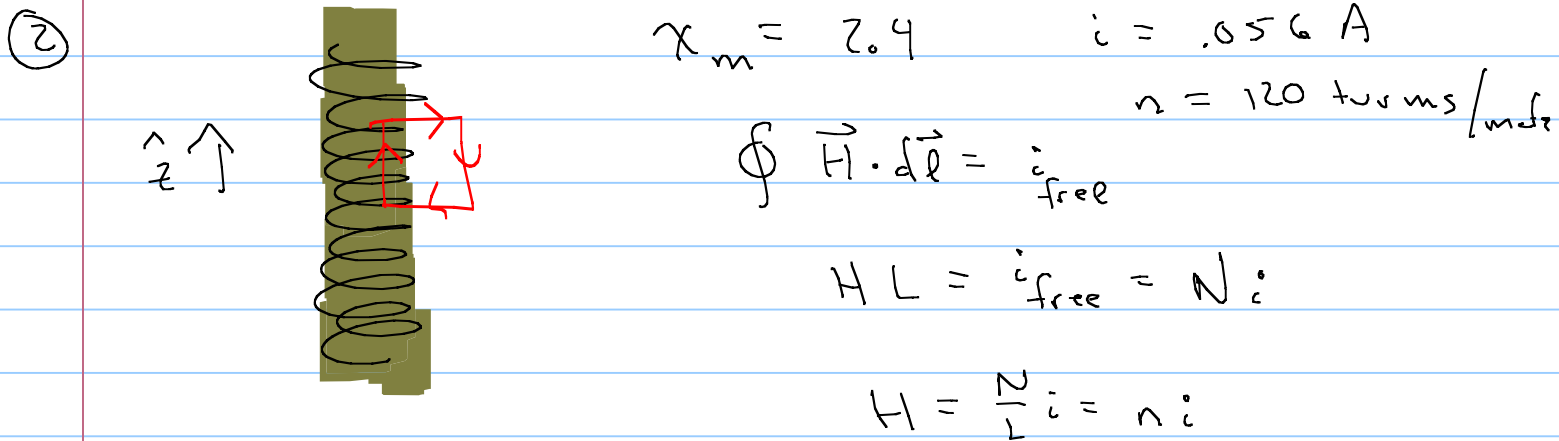 ② χ_m = 2.4 i = .056 A
n = 120 turns/meter
ẑ ↑ ∮ H⃗ · dl⃗ = i_free
H L = i_free = N i
H = N/L i = n i